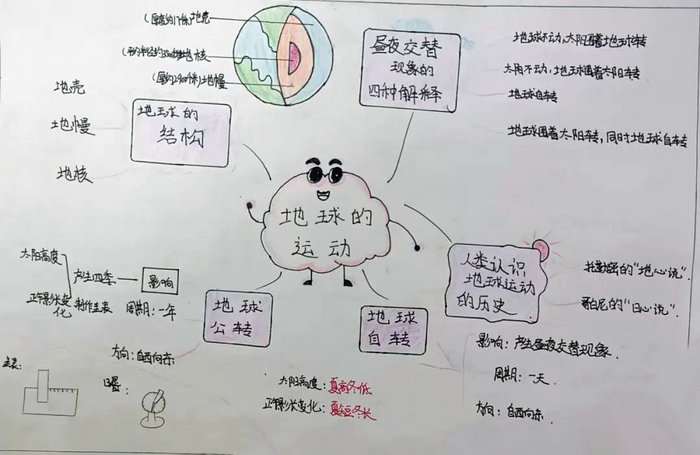 地壳
地核
地幔
地壳
地慢
地核
地球的
结构
昼夜交替
现象的
四种解释
地球不动,太阳围着地球转
太阳不动,地球围着太阳转
地球自转
地球围着太阳转,同时地球自转
地球的
运动
人类认识
地球运动
的历史
托勒密的“地心说”
哥白尼的“日心说”
太阳高度
产生四季
影响
正午影长变
化
制作圭表
周期:一年
方向:自西向东
地球
公转
地球
自转
影响:产生昼夜交替现象.
周期:一天.
方向:自西向东.
圭表:
日晷:
太阳高度:夏高冬低
正午影长变化:夏短冬长